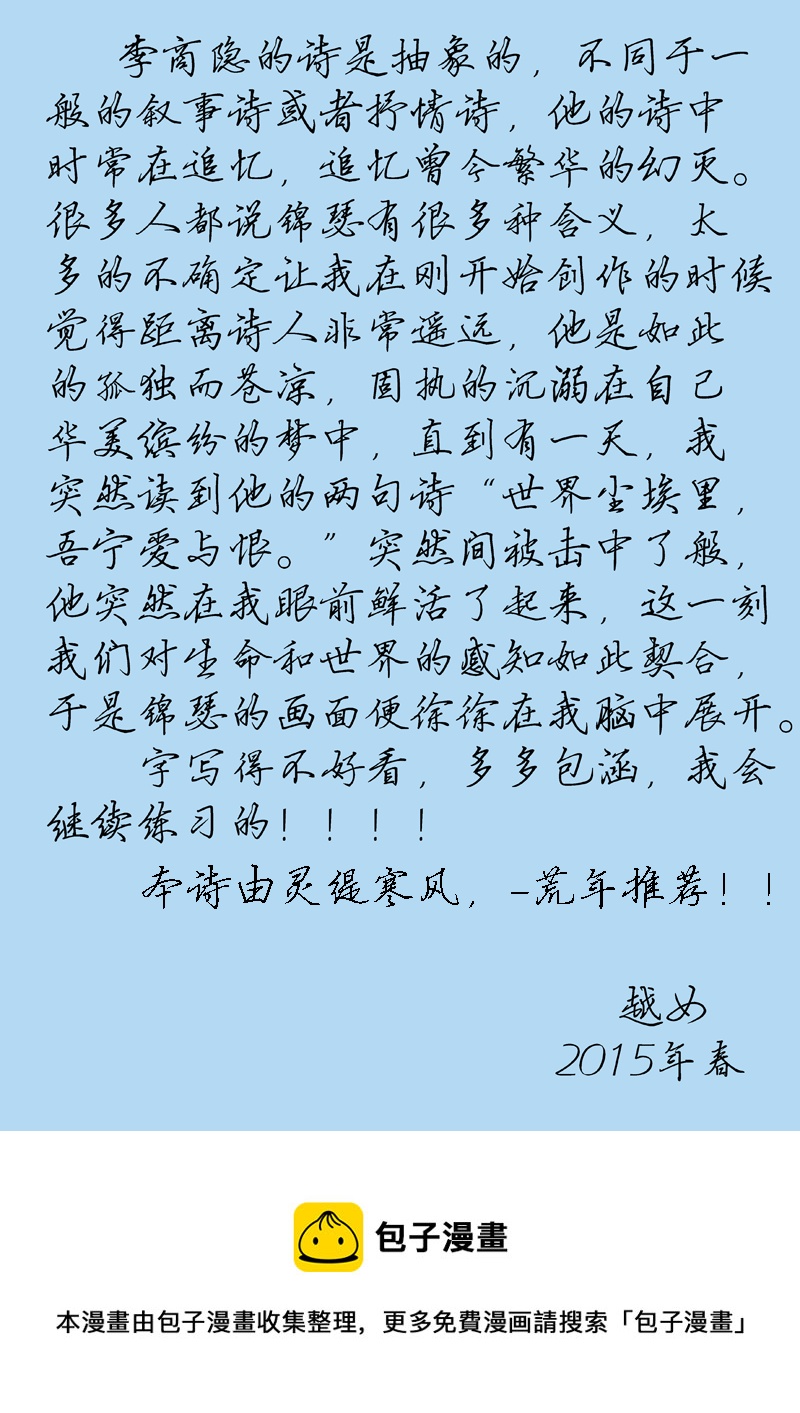 李商隐的诗是抽象的，不同于一
般的叙事诗或者抒情诗，他的诗中
时常在追忆，追忆曾今繁华的幻灭。
很多人都说锦瑟有很多种含义，太
多的不确定让我在刚开始创作的时候
觉得距离诗人非常遥远，他是如此
的孤独而苍凉，固执的沉溺在自己
华美缤纷的梦中，直到有一天，我
突然读到他的两句诗“世界尘埃里，
吾宁爱与恨。”突然间被击中了般，
他突然在我眼前鲜活了起来，这一刻
我们对生命和世界的感知如此契合，
于是锦瑟的画面便徐徐在我脑中展开。
字写得不好看，多多包涵，我会
继续练习的！！！！
本诗由灵缇寒风，-荒年推荐！！
越女
2015年春
包子漫畫
本漫畫由包子漫畫收集整理，更多免費漫画請搜索「包子漫畫」